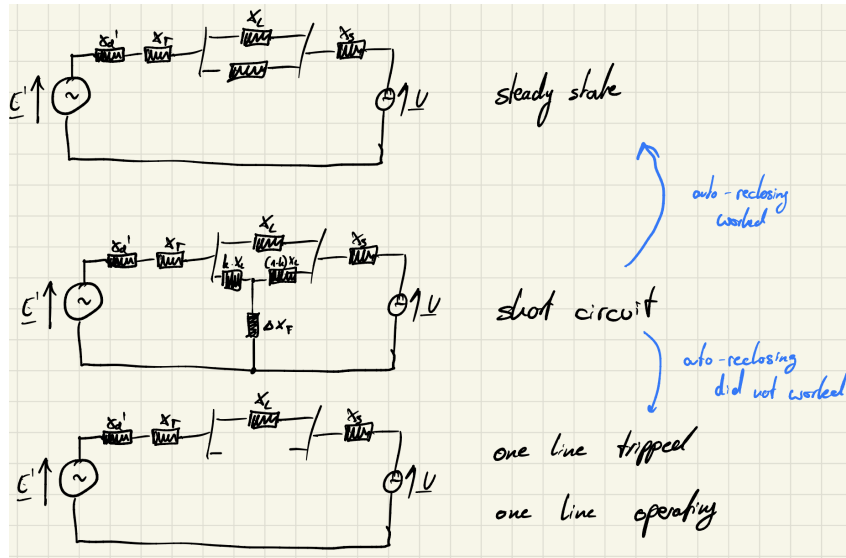 X_L
X_d' X_T X_S
E' U
steady state
auto-reclosing
worked
X_L
X_d' X_T X_S
k·X_L (1-k)X_L
E' U
short circuit
ΔX_F
auto-reclosing
did not worked
X_L
X_d' X_T X_S
one line tripped
E' U
one line operating